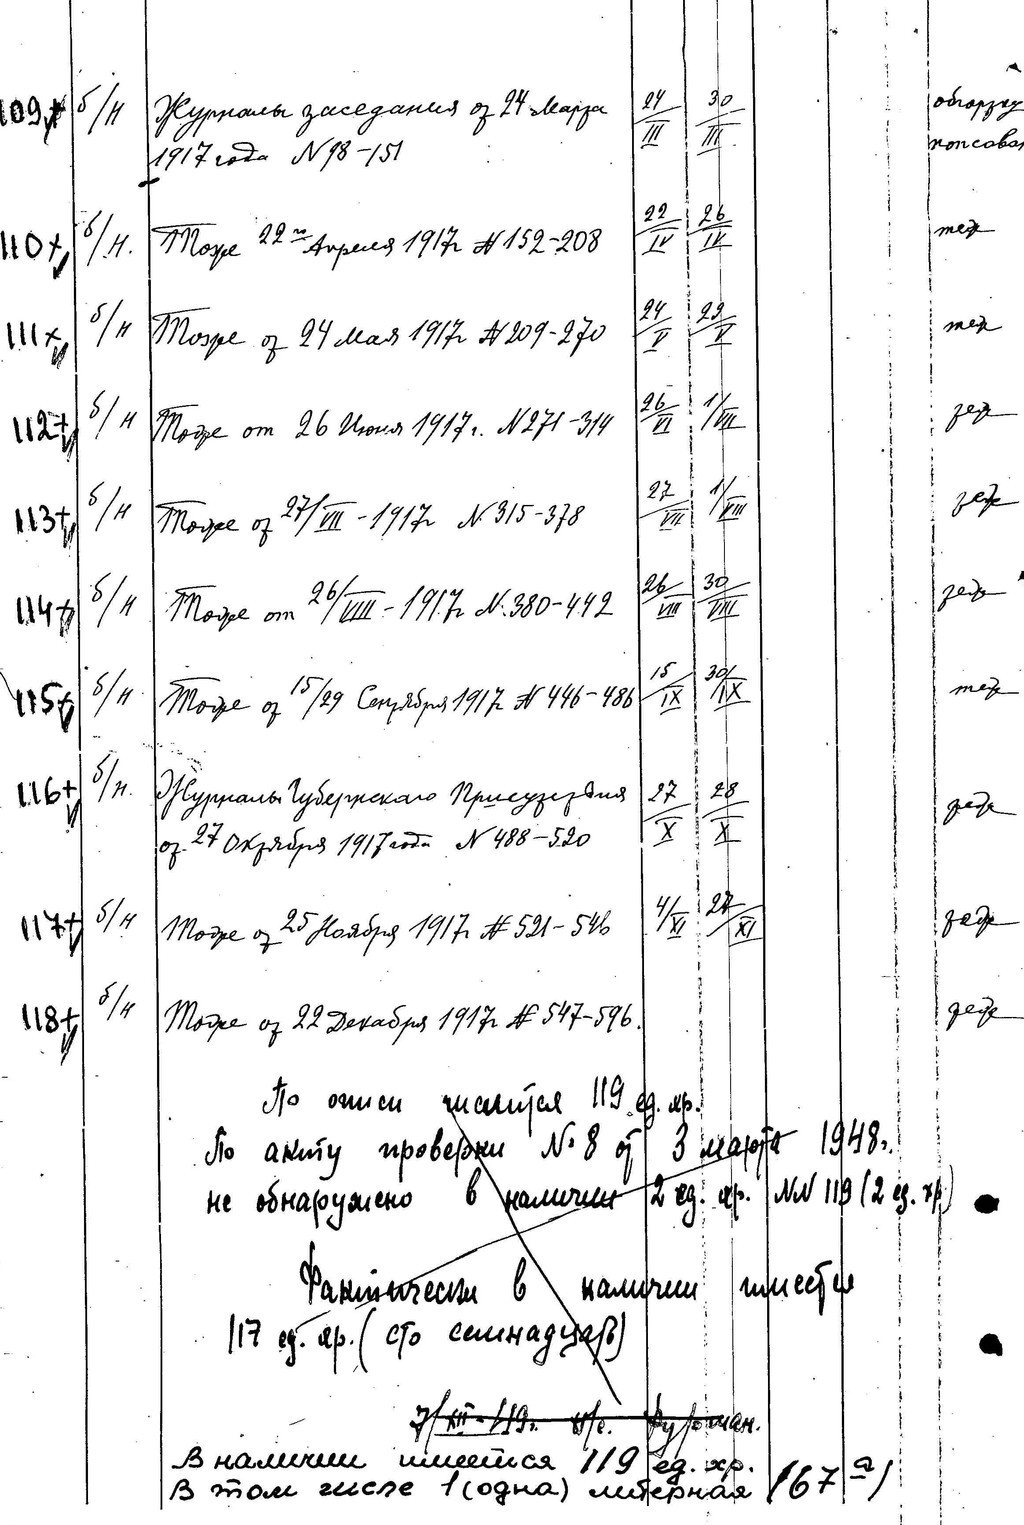 109+ б/н Журналы заседания от 24 Марта 24/III 30/III
1917 года N 98-151
110+ б/н. Тоже 22го Апреля 1917г N 152-208 22/IV 26/IV тож
111x б/н Тоже от 24 Мая 1917г N 209-270 24/V 29/V тож
112+ б/н Тоже от 26 Июня 1917г. N 271-314 26/VI 1/VII тож
113+ б/н Тоже от 27/VII-1917г N 315-378 27/VII 1/VIII тож
114+ б/н Тоже от 26/VIII-1917г N. 380-442 26/VIII 30/VIII тож
115+ б/н Тоже от 15/29 Сентября 1917г N 446-486 15/IX 30/IX тож
116+ б/н. Журналы Губернского Присутствия 27/X 28/X тож
от 27 Октября 1917 года N 488-520
117+ б/н Тоже от 25 Ноября 1917г N 521-546 4/XI 27/XI тож
118+ б/н Тоже от 22 Декабря 1917г N 547-596. тож
По описи числится 119 ед. хр.
По акту проверки № 8 от 3 марта 1948г.
не обнаружено в наличии 2 ед. хр. NN 119 (2 ед. хр)
Фактически в наличии имеется
117 ед. хр. (сто семнадцать)
7/XII-49г. н/с. Фурман.
В наличии имеется 119 ед. хр.
В том числе 1 (одна) литерная (67а)